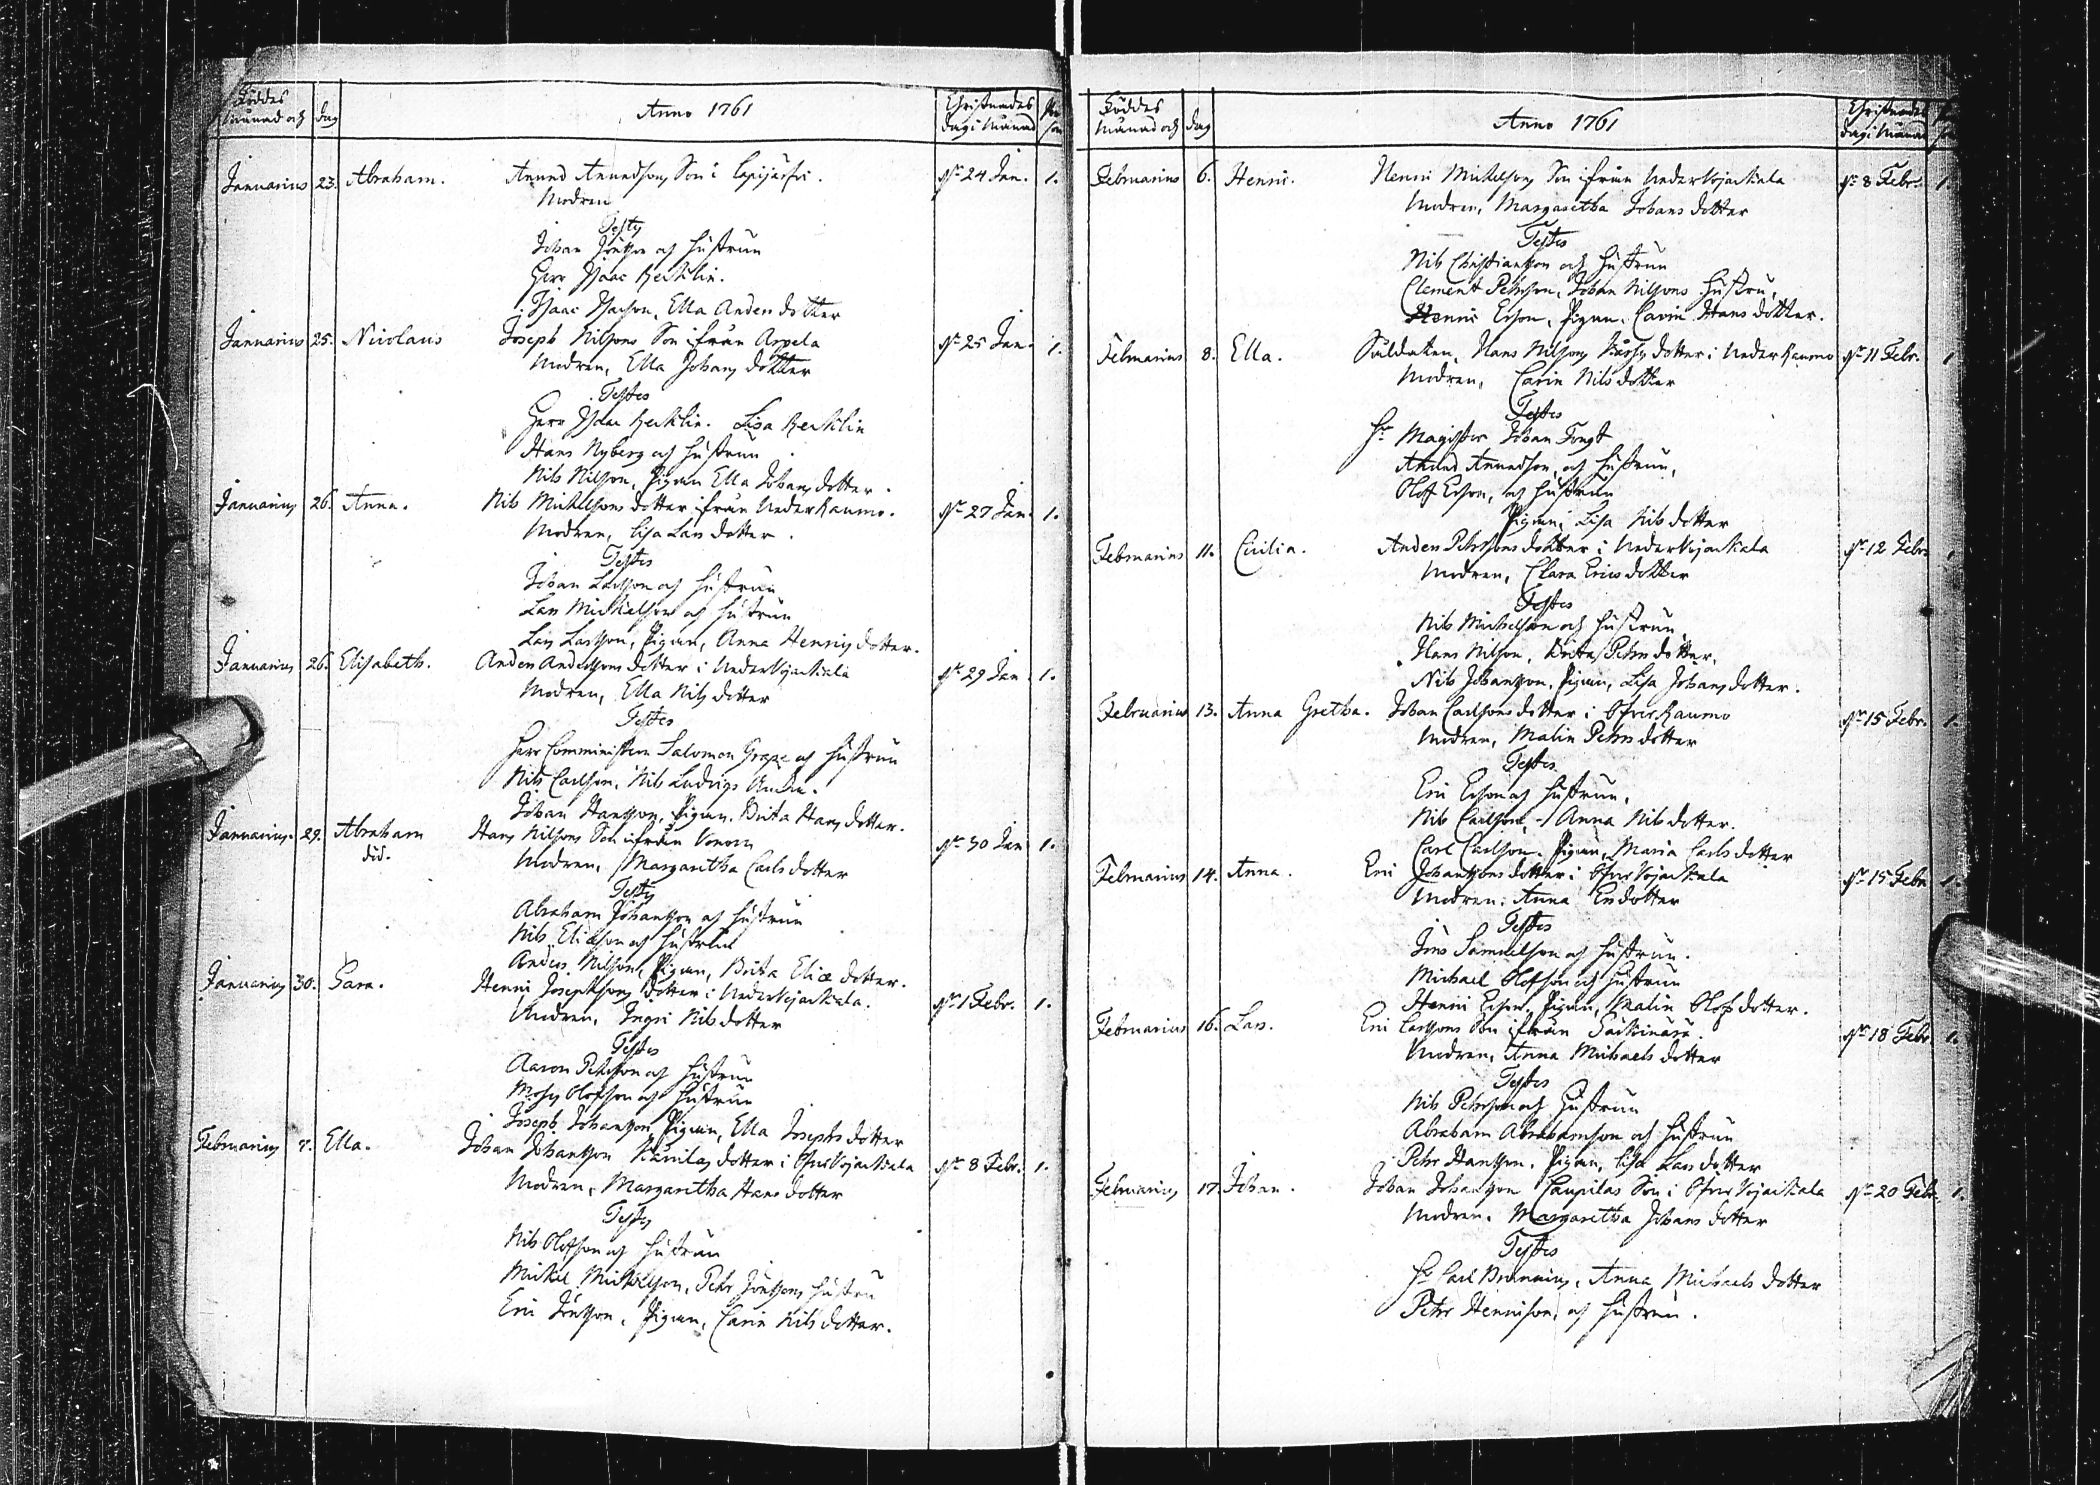 Föddes
Månad och dag
Anno 1761
Christnades
dag i Månad
Januarius 23. Abraham. Anund Anundsons Son i
d. 24 Jan. 1.
Modren
Testes
Johan Jönsson och hustrun
Herr Isaac Kecklin.
Isaac Isacson, Ella Andersdotter
Januarius 25. Nicolaus Joseph Nilsons Son ifrån Arpela
d. 25 Jan. 1.
Modren, Ella Johans dotter
Testes
Herr Isaac Kecklin. Lisa Kecklin
Hans Nyberg och hustrun
Nils Nilson, Pigan Ella Johans dotter.
Januarius 26. Anna. Nils Mickelsons dotter ifrån Neder Raumo.
d. 27 Jan. 1.
Modren, Lisa Lars dotter.
Testes
Johan Larsson och hustrun
Lars Mickelson och hustrun
Lars Larsson, Pigan, Anna Henrics dotter.
Januarius 26. Elisabeth. Anders Andersons dotter i Neder Vojackala
d. 29 Jan 1.
Modren, Ella Nils dotter
Testes
Herr Comministern Salomon Grape och hustrun
Nils Carlson, Nils Ludvigs
Johan Hansson, Pigan, Brita Hans dotter.
Januarius 29. Abraham Hans Nilsons Son ifrån Vonoin
did.
d. 30 Jan 1.
Modren, Margaretha Carls dotter
Testes
Abraham Johansson och hustrun
Nils Eliæson och hustrun
Anders Nilson, Pigan, Brita Eliæ dotter.
Januarius 30. Sara. Henric Josephsons dotter i Neder Vojackala.
d. 1 Febr. 1.
Modren, Ingri Nils dotter
Testes
Aaron Pehrson och hustrun
Mosis Olofson och hustrun
Joseph Johansson Pigan, Ella Josephs dotter
Februarius 7. Ella. Johan Johansson dotter i Öfver Vojackala
d. 8 Febr. 1.
Modren, Margaretha Hans dotter
Testes
Nils Olofson och hustrun
Mickel Mickelson, Pehr Jönssons hustru
Eric Jönsson, Pigan, Carin Nils dotter.
Föddes
Månad och dag
Anno 1761
Christnades
dag i Månad
Februarius 6. Henric. Henric Mickelsons Son ifrån Neder Vojackala
d. 8 Febr. 1.
Modren, Margaretha Johans dotter
Testes
Nils Christiansson och hustrun
Clement Pehrson, Johan Nilsons hustru,
Henric Ersson, Pigan, Carin Hans dotter.
Februarius 8. Ella. Soldaten, Hans Nilsons dotter i Neder Raumo
d. 11 Febr. 1
Modren, Carin Nils dotter
Testes
Hr Magister Johan Fougt
Anund Anundson, och hustrun,
Olof Ersson, och hustrun
Pigan, Lisa Nils dotter
Februarius 11. Cicilia. Anders Pehrsons dotter i Neder Vojackala
d. 12 Febr 1
Modren, Clara Erics dotter
Testes
Nils Mickelson och hustrun
Hans Nilson, Brita Pehrs dotter,
Nils Johansson, Pigan, Lisa Johans dotter.
Februarius 13. Anna Gretha. Johan Carlsons dotter i Öfver Raumo
d. 15 Febr. 1.
Modren, Malin Pehrs dotter
Testes
Eric Ersson och hustrun,
Nils Carlson, Anna Nils dotter.
Carl Carlson, Pigan, Maria Carls dotter
Februarius 14. Anna. Eric Johanssons dotter i Öfver Vojackala
d. 15 Febr. 1.
Modren: Anna Ersdotter
Testes
Jöns Samuelson och hustrun.
Michael Olofson och hustrun
Henric Ersson, Pigan, Malin Olofs dotter.
Februarius 16. Lars. Eric Larssons Son ifrån
d. 18 Febr. 1.
Modren, Anna Michaels dotter
Testes
Nils Pehrson och Hustrun
Abraham Abrahamson och hustrun
Pehr Hansson, Pigan, Lisa Lars dotter
Februarius 17. Johan. Johan Johansson Caupilas Son i Öfver Vojackala
d. 20 Febr. 1.
Modren, Margaretha Johans dotter
Testes
Hr Carl Brunnius, Anna Michaels dotter
Pehr Henricson, och hustrun.